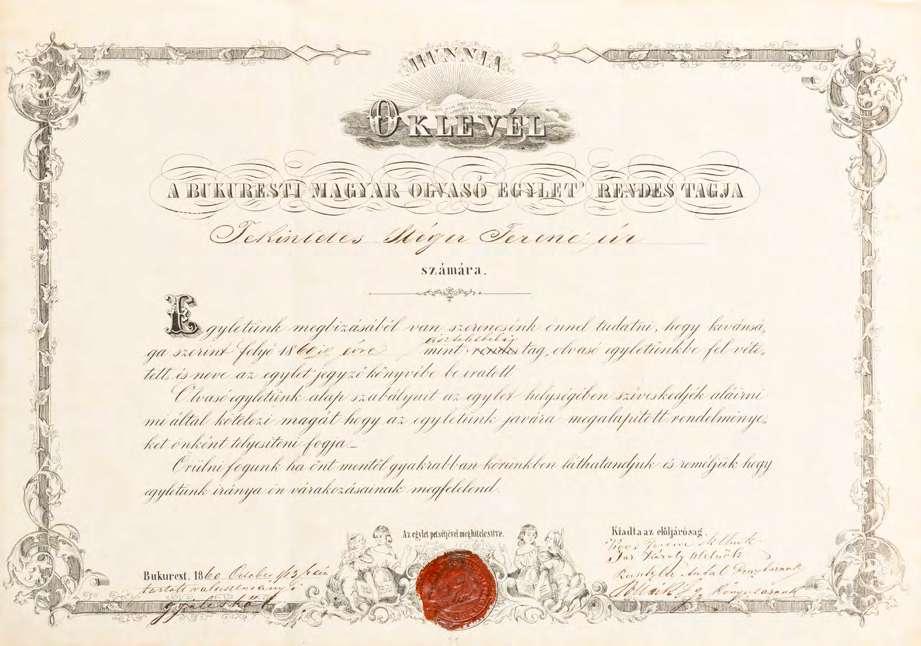 HUNNIA
OKLEVÉL
A BUKURESTI MAGYAR OLVASÓ EGYLET' RENDES TAGJA
Tekintetes Stéger Ferenc úr
számára.
Egyletünk megbizásából van szerencsénk önnel tudatni, hogy kivánsá,
ga szerint folyó 1860ik évre tiszteletbeli mint rendes tag, olvasó egyletünkbe fel véte,
tett, is neve az egylet jegyző könyvibe be iratott.
Olvasó egyletünk alap szabályait az egylet helységében sziveskedjék aláirni
mi által kötelezi magát hogy az egyletünk javára megalapított rendelménye,
ket önként telyesíteni fogja_
Örülni fogunk ha önt mentől gyakrabban körünkben láthatandjuk is reméljük hogy
egyletünk iránya ön várakozásainak megfelelend.
Az egylet petsétjével meghitelesitve.
Kiadta az elöljáróság
Bukurest. 1860 October
tartott
Antal